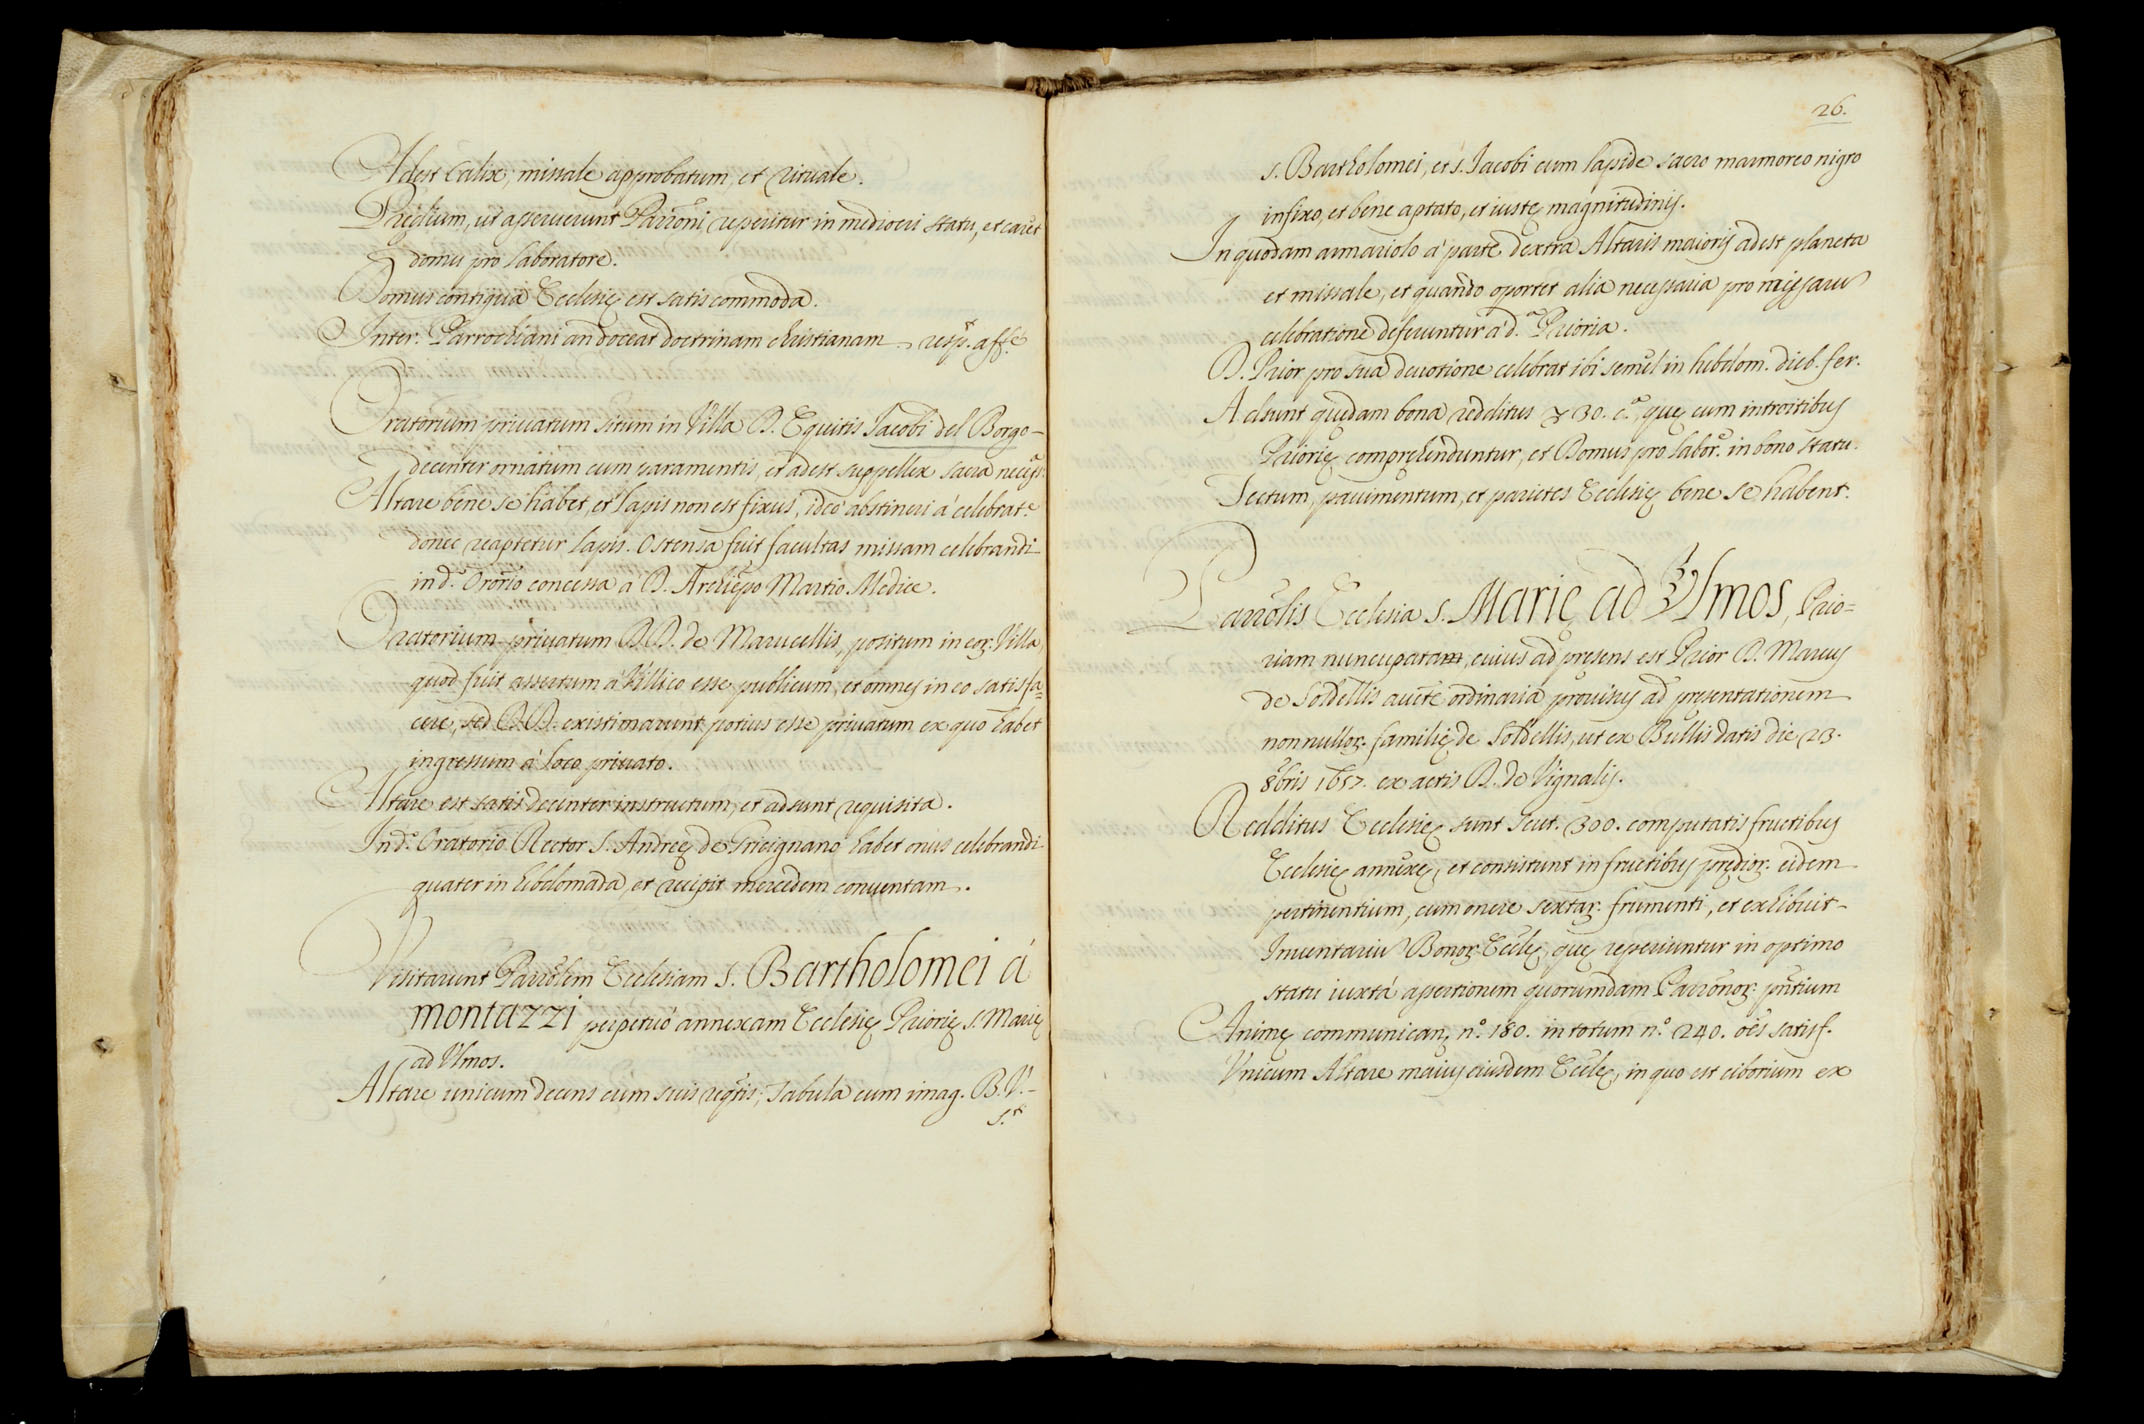 Adest Calix, missale approbatum, et rituale.
Predium, ut asseruerunt Parrōni reperitur in mediocri statu, et caret
domus pro laboratore.
Domus contigua Ecclesię est satis commoda.
Inter. Parrochiani an doceat doctrinam christianam resp.t aff.e
Oratorium priuatum situm in Villa D. Equitis Jacobi del Borgo-
decenter ornatum cum paramentis, et adest suppellex sacra necess.
Altare bene se habet, et lapis non est fixus, ideo abstineri à celebrat.e
donec reaptetur lapis. Ostensa fuit facultas missam celebrandi
in d.o Ororio concessa à D. Archiepo Martio Medice.
Oratorium priuatum D.D. de Marucellis, positum in eor. Villa,
quod fuit assertum à Villico esse publicum, et omnes in eo satisfa=
cere, sed D.D. existimarunt potius esse priuatum ex quo habet
ingressum à loco priuato.
Altare est satis decenter instructum, et adsunt requisita.
In d.o Oratorio Rector S. Andreę de Gricignano habet onus celebrandi
quater in hebdomada, et recipit mercedem conuentam.
Visitarunt Parrōlem Ecclesiam S. Bartholomei à
montazzi perpetuò annexam Ecclesię Priorię S. Marię
ad Vlmos.
Altare unicum decens cum suis reqtis; Tabula cum imag. B. V.-
S.t
26.
S. Bartholomei, et S. Jacobi cum lapide sacro marmoreo nigro
infixo, et bene aptato, et iustę magnitudinis.
In quodam armariolo a parte dextra Altaris maioris adest planeta
et missale, et quando oportet alia necessaria pro
celebratione deferuntur à d.a Prioria.
D. Prior pro sua deuotione celebrat ibi semel in hebdom. dieb. fer.
Adsunt quędam bona redditus 30. c.a, quę cum introitibus
Priorię comprehenduntur, et Domus pro labor. in bono statu.
Tectum, pauimentum, et parietes Ecclesię bene se habent.
Parrōlis Ecclesia S. Marię ad Vlmos, Prio=
riam nuncupatam, cuius ad pręsens est Prior D. Marcus
de Soldellis aucte ordinaria prouisus ad pręsentationem
nonnullor. familię de Soldellis, ut ex Bullis datis die 23.
8bris 1657. ex actis D. de Vignalis.
Redditus Ecclesię sunt Scut. 300. computatis fructibus
Ecclesię annexę, et consistunt in fructibus prędior. eidem
pertinentium, cum onere sextar. frumenti, et exhibuit-
Inuentariu Bonor. Eccłę, quę reperiuntur in optimo
statu iuxtà assertionem quorumdam Parrōnor. pntium
Animę communican, n.o 180. in totum n.o 240. oēs satisf.
Vnicum Altare maius eiusdem Eccłę, in quo est ciborium ex